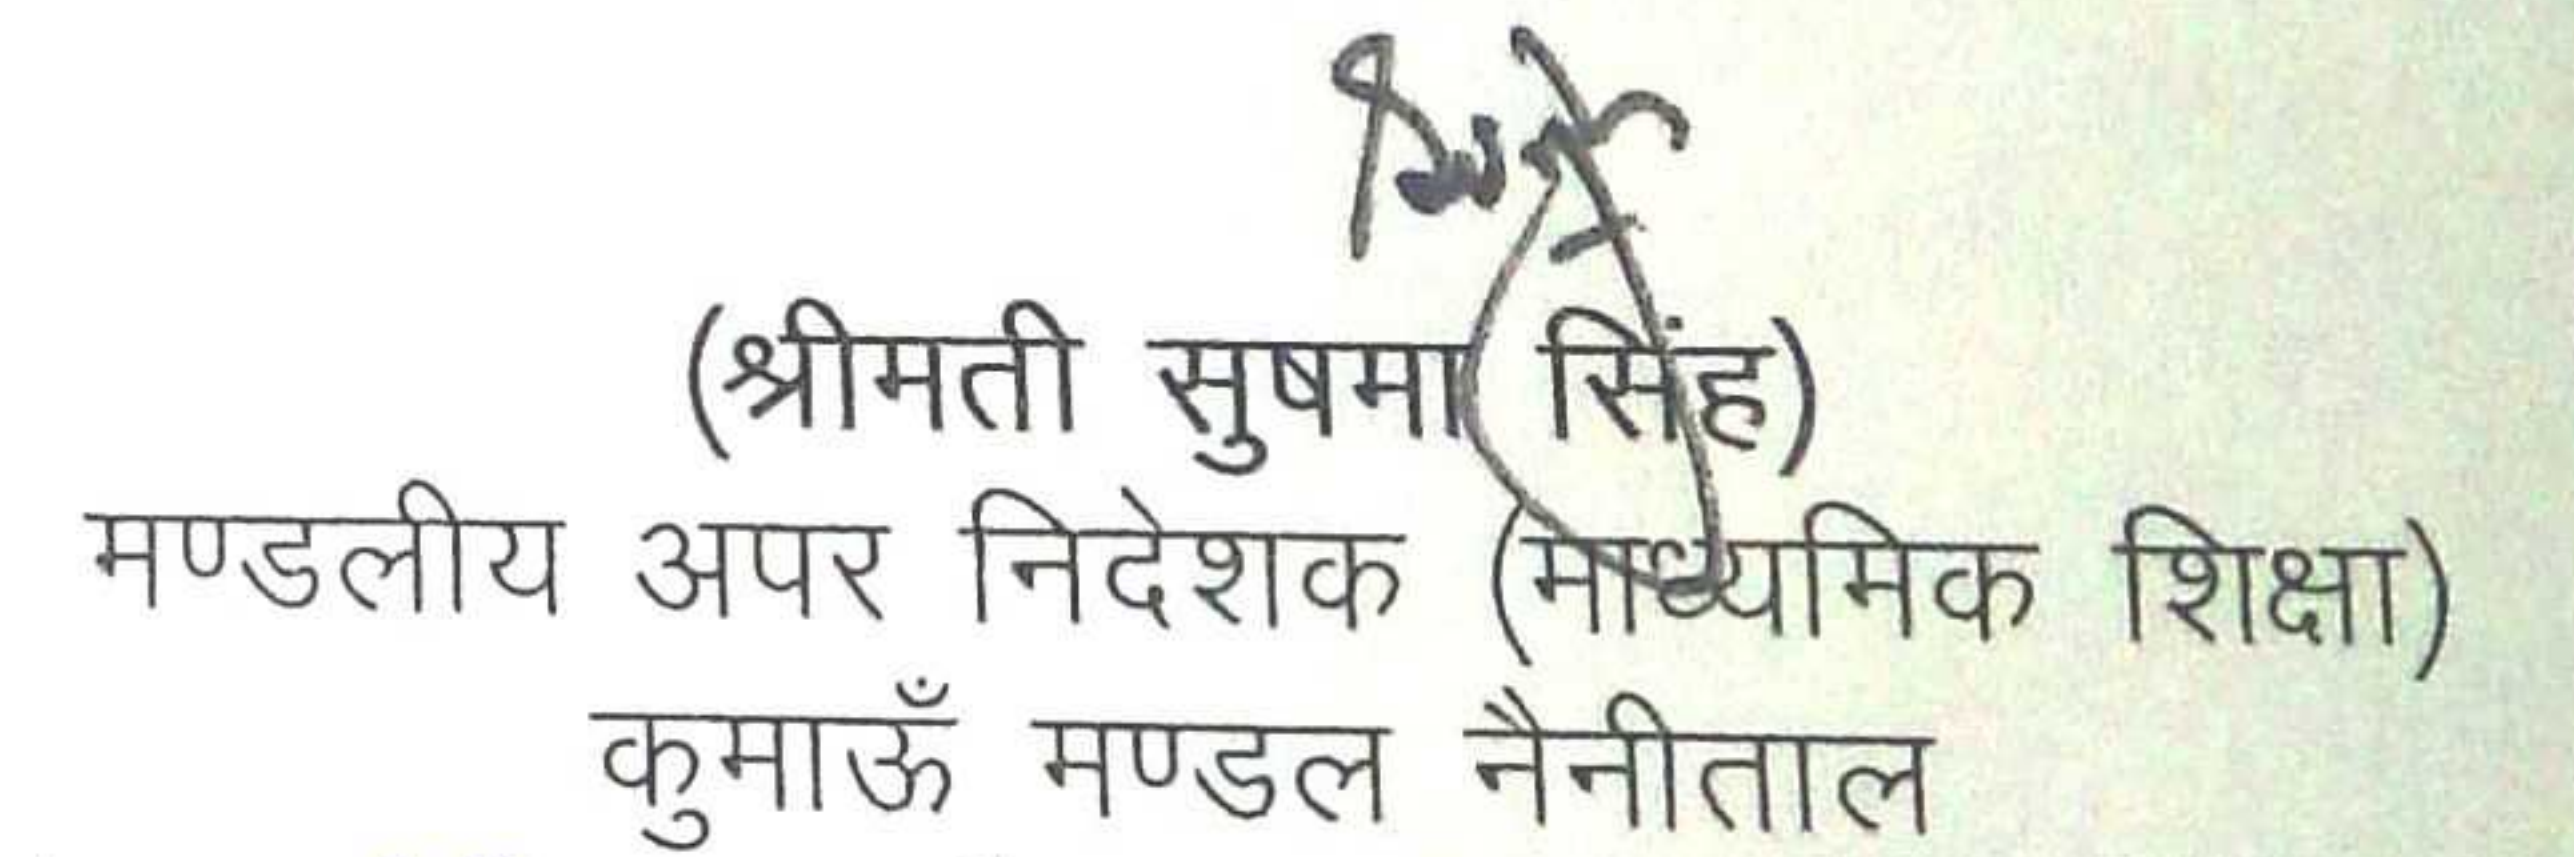 (श्रीमती सुषमा सिंह)
मण्डलीय अपर निदेशक (माध्यमिक शिक्षा)
कुमाऊँ मण्डल नैनीताल